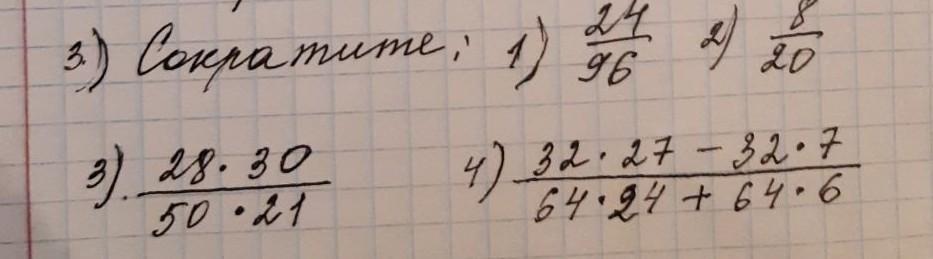 3.) Сократите: 1) 24/96 2) 8/20
3). 28·30/50·21 4) 32·27-32·7/64·24+64·6